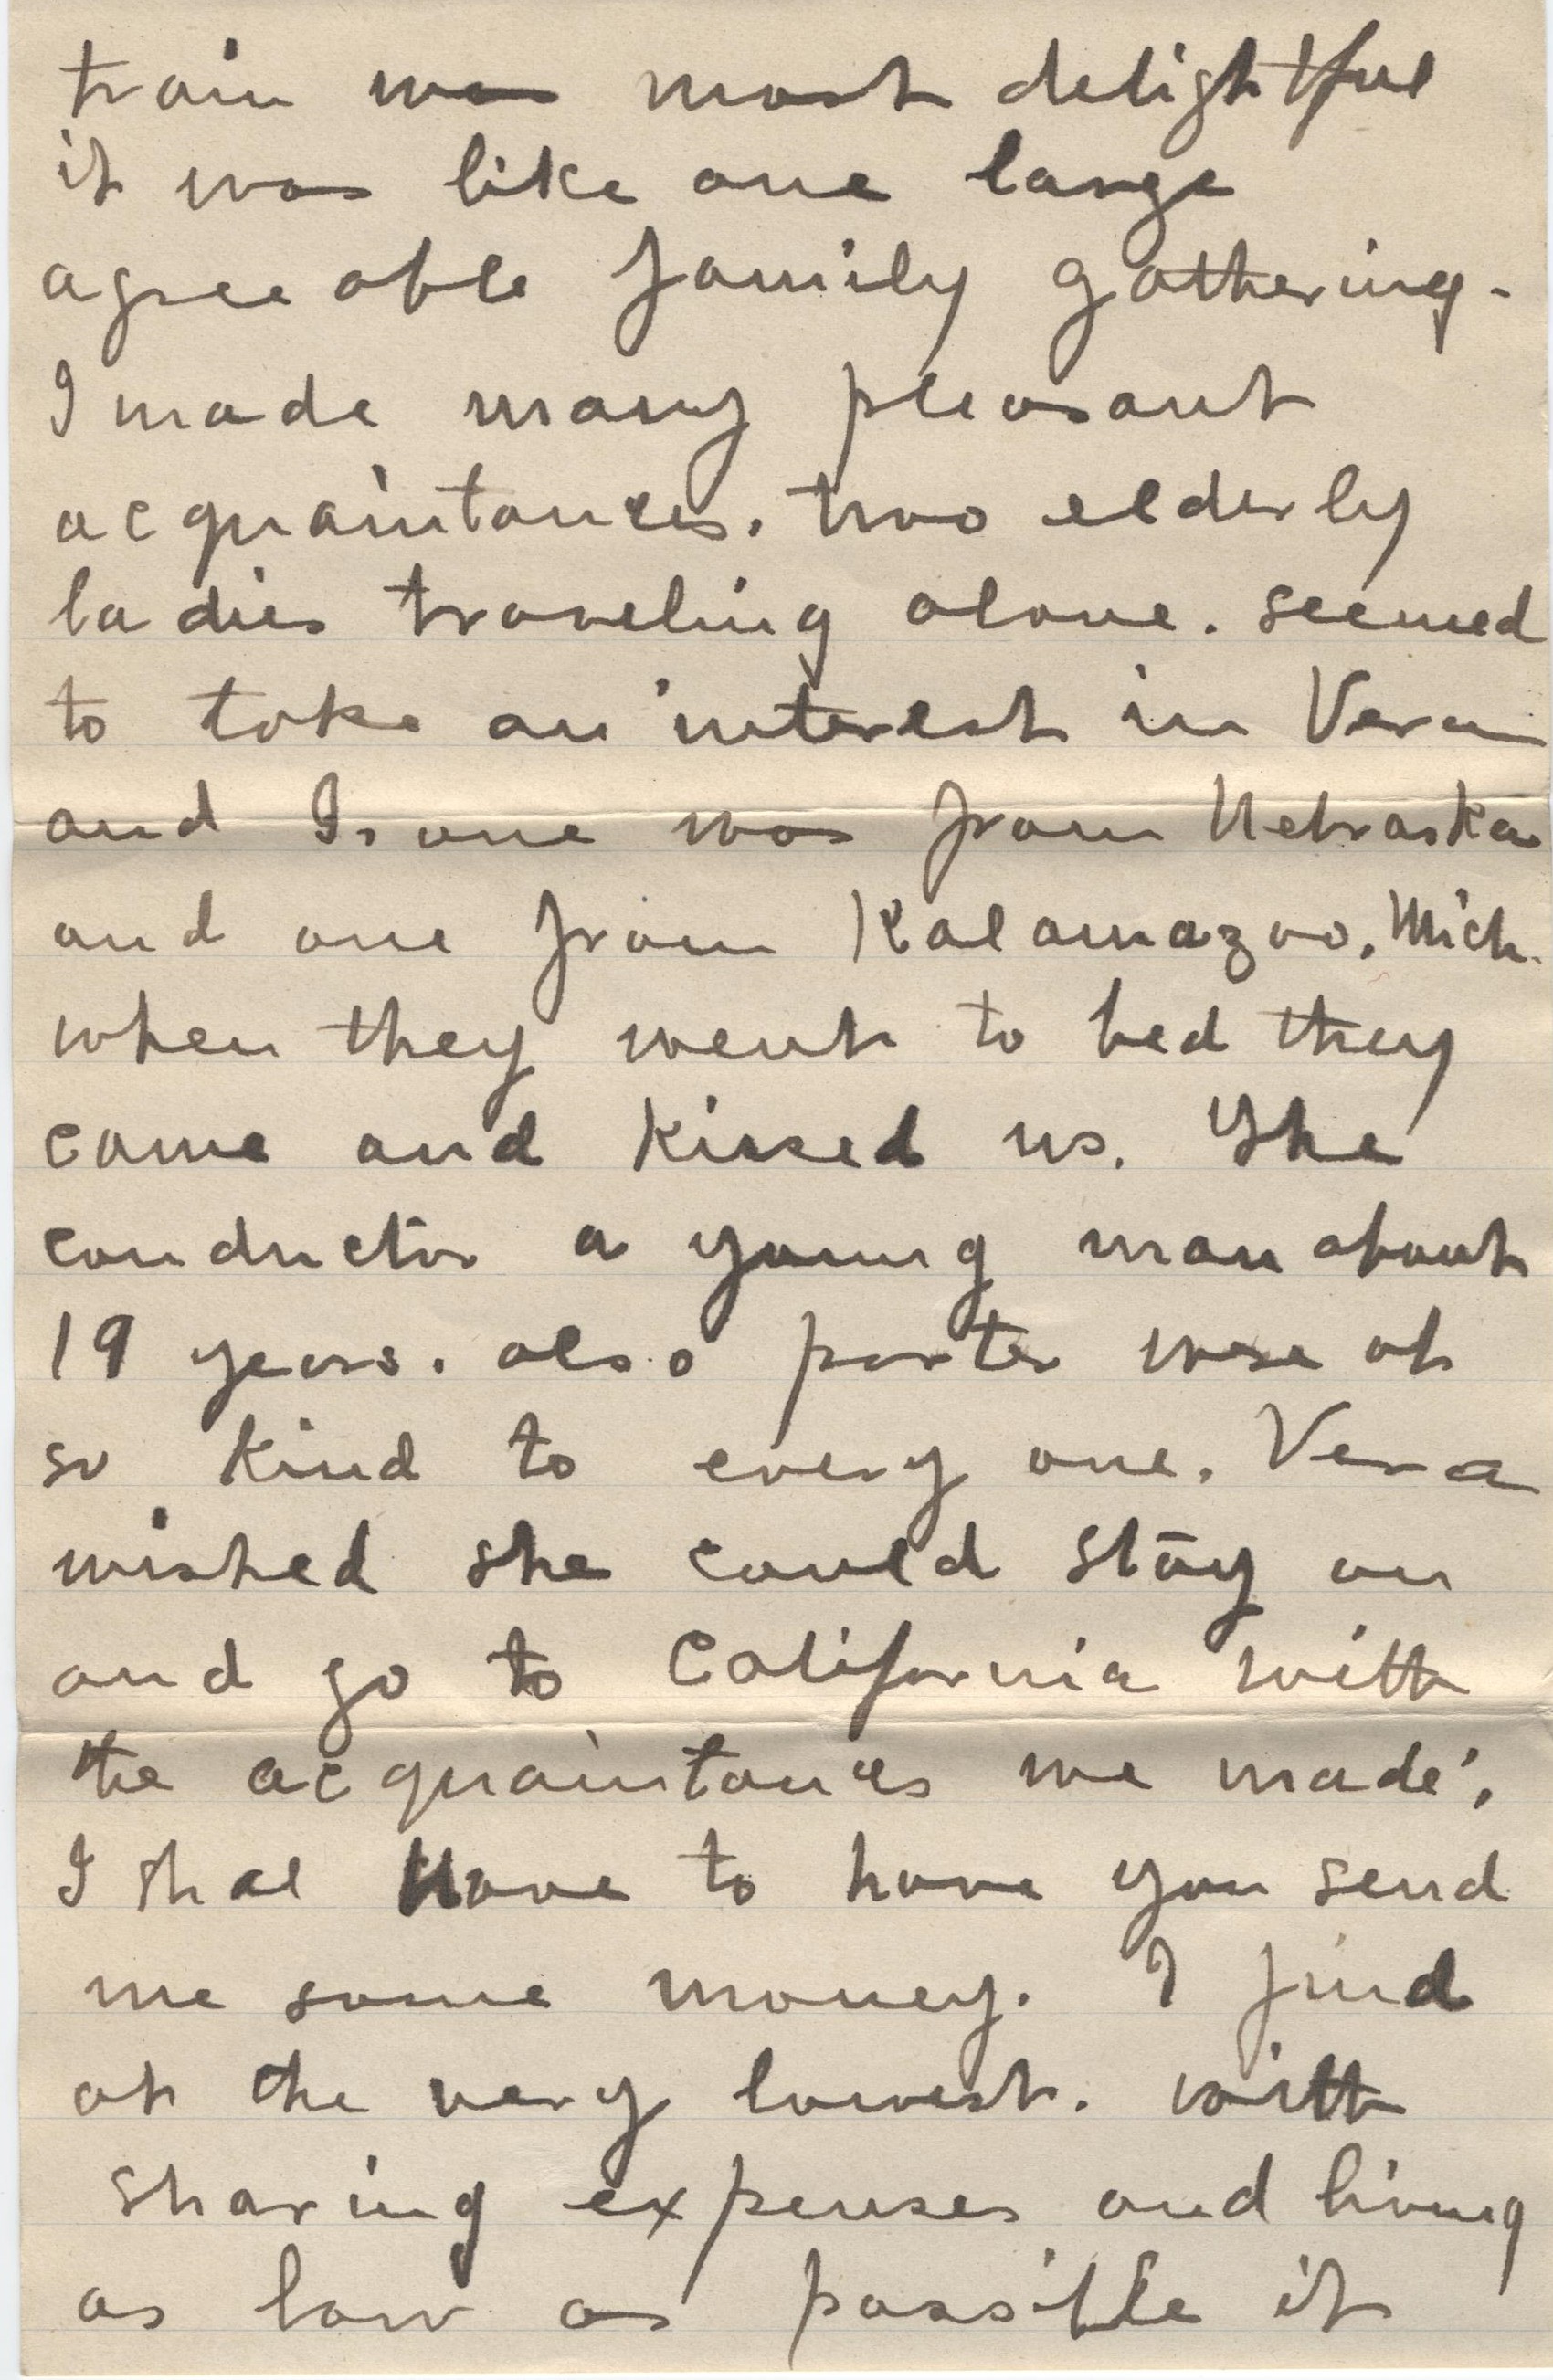 train was most delightful
it was like one large
agreeable family gathering.
I made many pleasant
acquaintances. two elderly
ladies traveling alone. seemed
to take an interest in Vera
and I. one was from Nebraska
and one from Kalamazoo, Mich.
when they went to bed they
came and kissed us. The
conductor a young man about
19 years. also porter
so kind to every one. Vera
wished she could stay on
and go to California with
the acquaintances we made.
I shal have to have you send
me some money. I find
at the very lowest. with
sharing expenses and living
as low as possible it